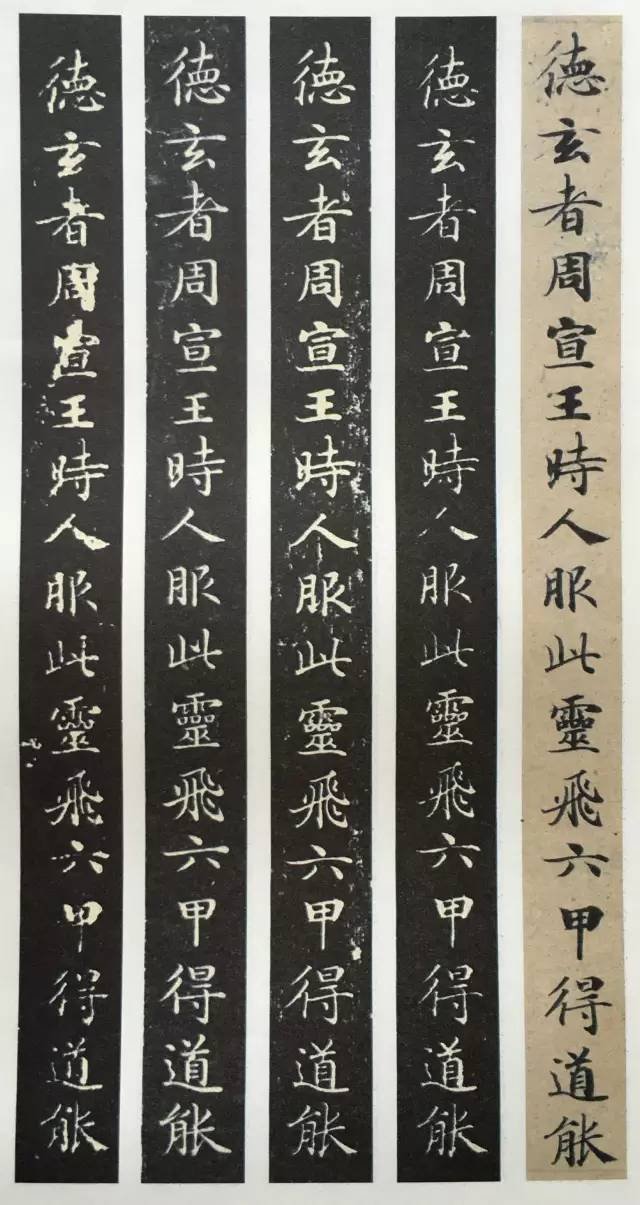 德玄者周宣王時人服此靈飛六甲得道能
德玄者周宣王時人服此靈飛六甲得道能
德玄者周宣王時人服此靈飛六甲得道能
德玄者周宣王時人服此靈飛六甲得道能
德玄者周宣王時人服此靈飛六甲得道能